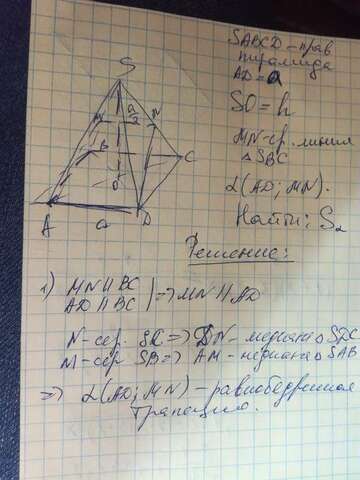 SABCD – прав
пирамида
AD = a
SO = h
MN – ср. линия
△SBC
α(AD; MN).
Найти: Sα
Решение:
S
M
a/2
N
B
C
O
A
a
D
1) MN ∥ BC
AD ∥ BC | => MN ∥ AD
N – сер. SC => DN – медиана △ SDC
M – сер SB => AM – медиана △ SAB
=> α(AD; MN) – равнобедренная
трапеция.